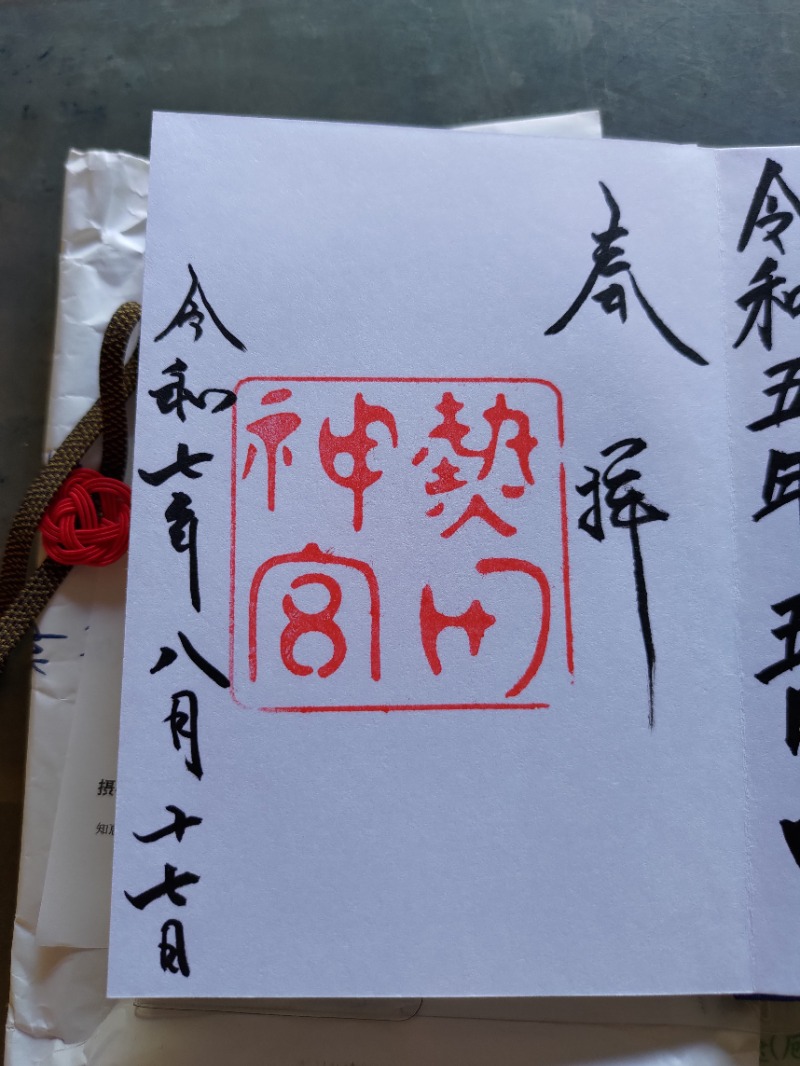 令和五年
奉拝
熱田
神宮
令和七年八月十七日
摂
知